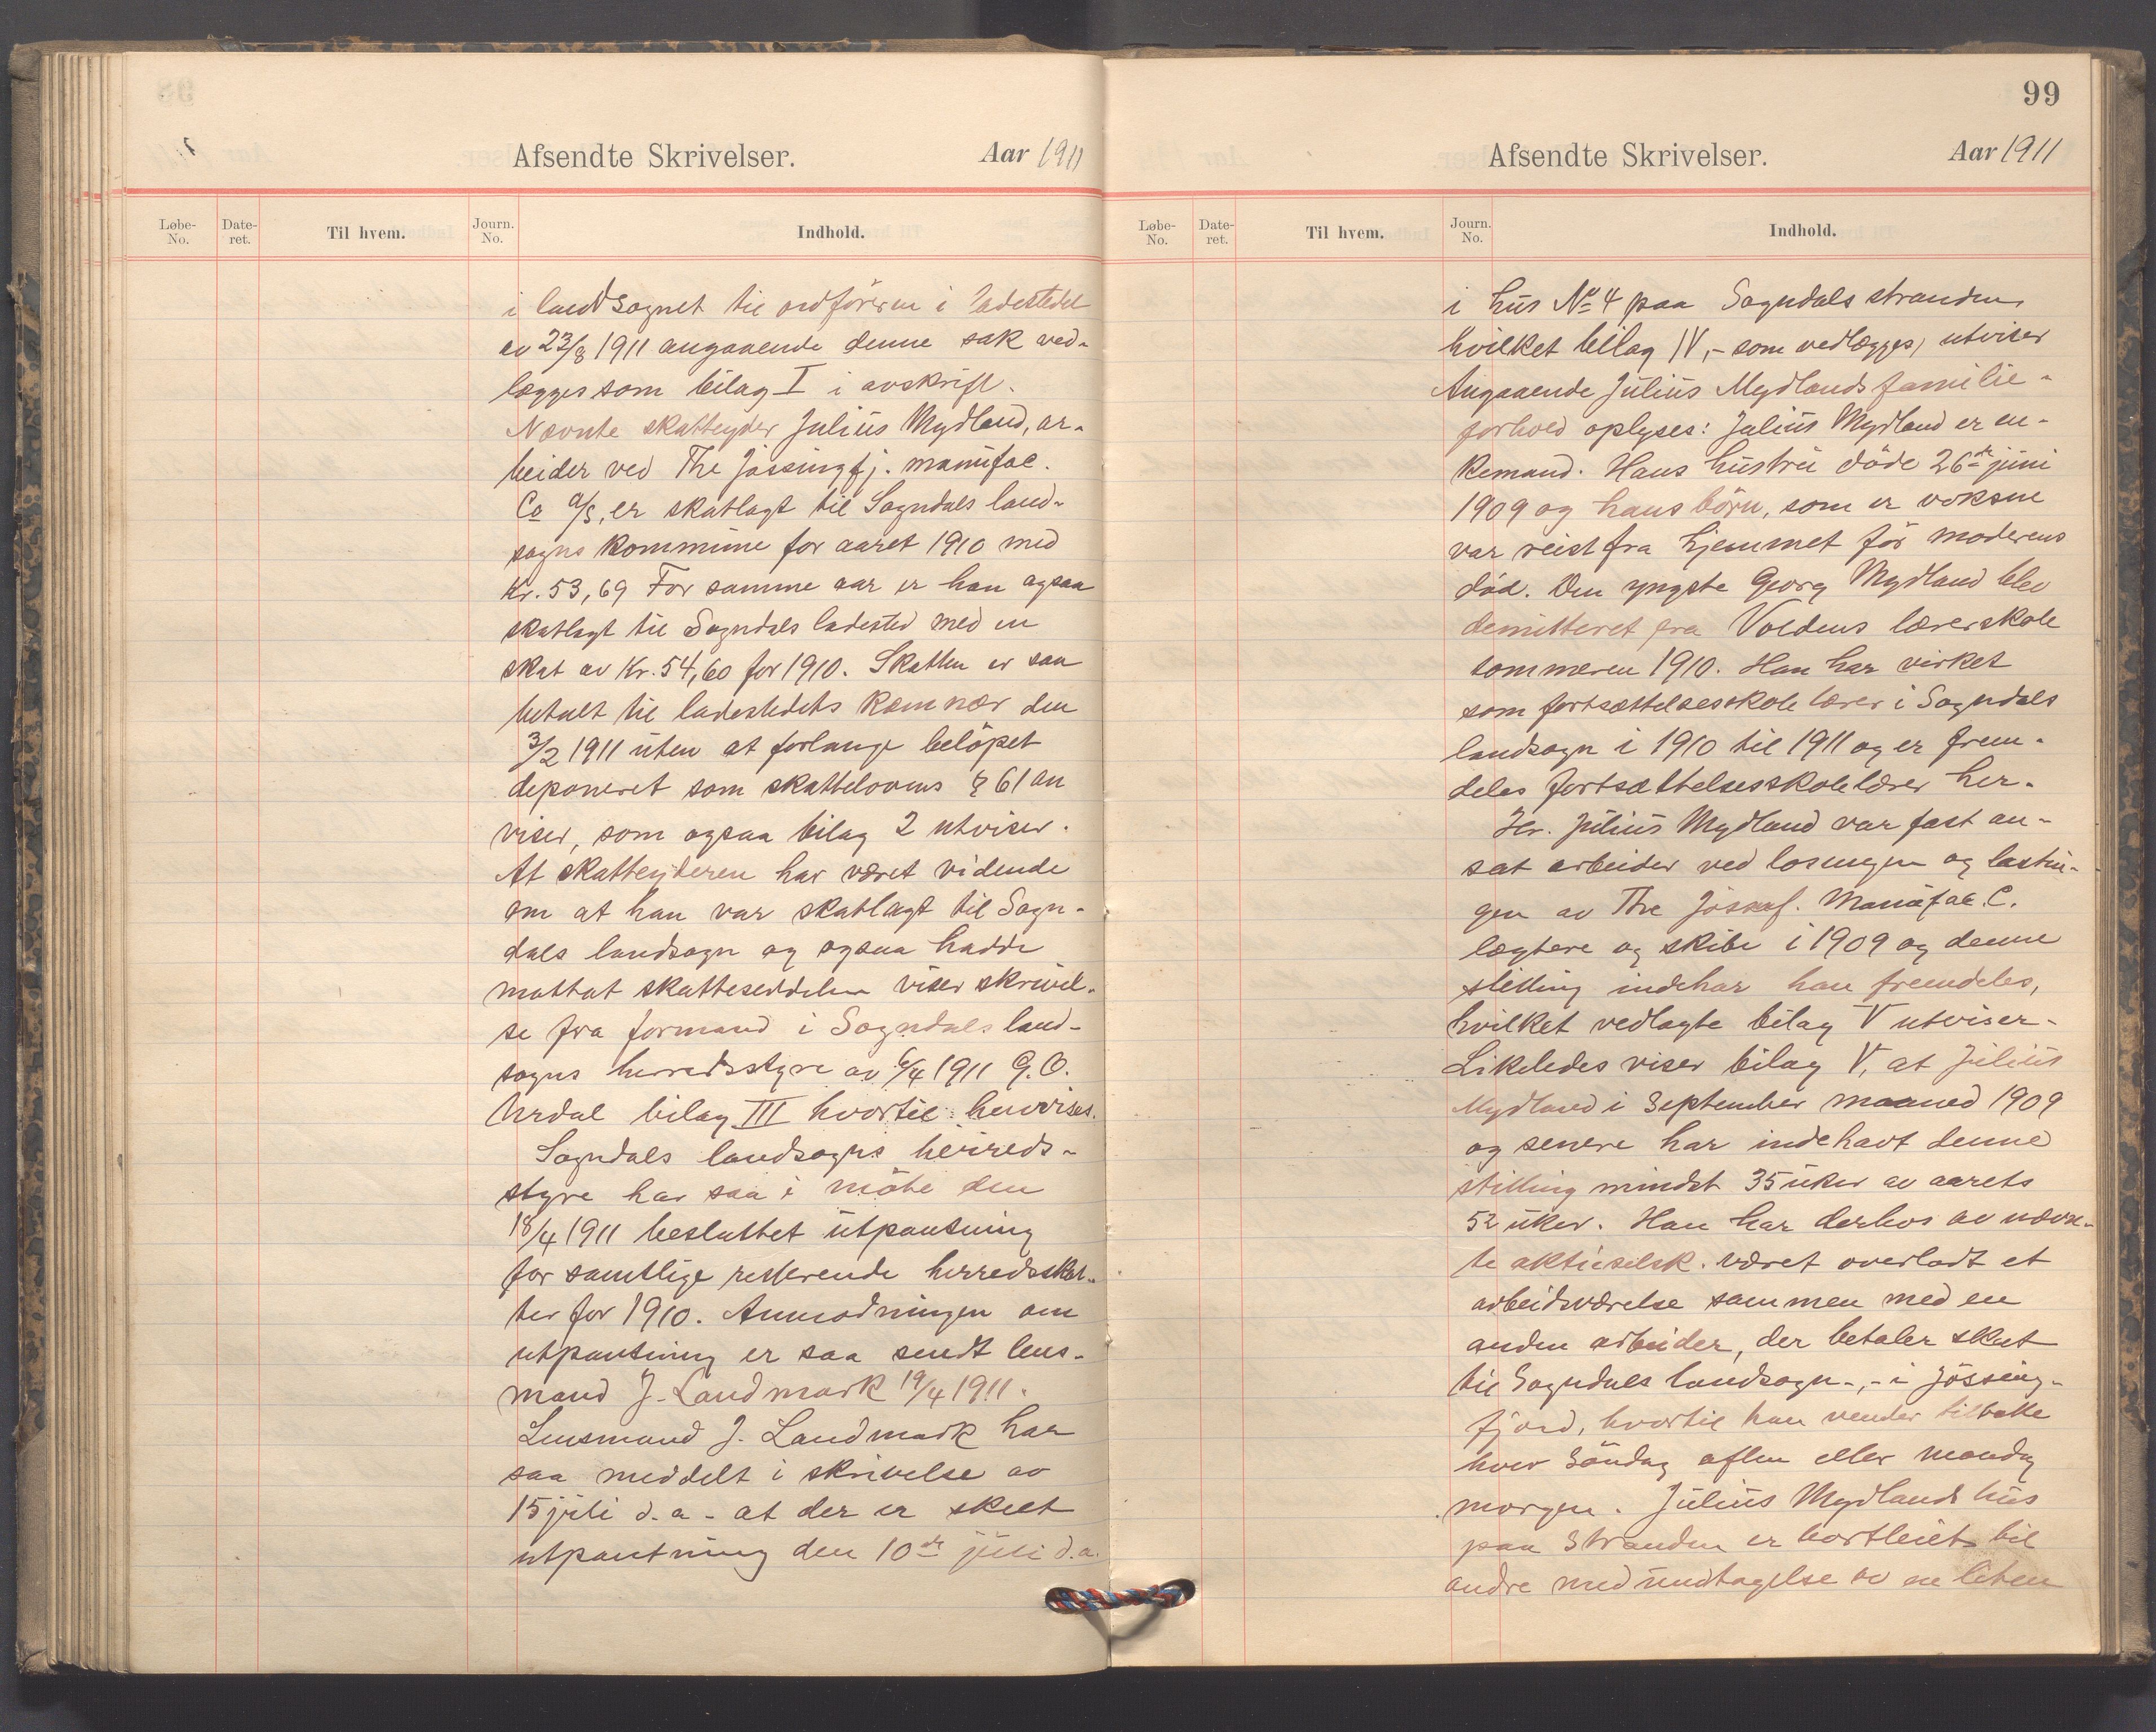 Afsendte Skrivelser.
Aar 1911
Løbe-No.
Date-ret.
Til hvem.
Journ. No.
Indhold.
i landsognet til ordföreren i ladestedet
av 23/8 1911 angaaende denne sak ved-
lægges som bilag I i avskrift.
Nævnte skatteyder Julius Mydland, ar-
beider ved The Jössingfj. manufac.
Co a/s, er skatlagt til Sogndals land-
sogns kommune for aaret 1910 med
Kr. 53,69 For samme aar er han ogsaa
skatlagt til Sogndals ladested med en
skat av Kr. 54,60 for 1910. Skatten er saa
betalt til ladestedets kæmnær den
3/2 1911 uten at forlange belöpet
deponeret som skattelovens § 61 an
viser, som ogsaa bilag 2 utviser.
At skatteyderen har været vidende
om at han var skatlagt til Sogn-
dals landsogn og ogsaa hadde
mottat skatteseddelen viser skrivel-
se fra formand i Sogndals land-
sogns herredsstyre av 6/4 1911 G. O.
Urdal bilag III hvortil henvises.
Sogndals landsogns herreds-
styre har saa i möte den
18/4 1911 besluttet utpantning
for samtlige resterende herredsskat-
ter for 1910. Anmodningen om
utpantning er saa sendt lens-
mand J. Landmark 19/4 1911.
Lensmand J. Landmark har
saa meddelt i skrivelse av
15 juli d.a. at der er skeet
utpantning den 10de juli d.a.
99
Afsendte Skrivelser.
Aar 1911
Løbe-No.
Date-ret.
Til hvem.
Journ. No.
Indhold.
i hus No 4 paa Sogndalsstranden,
hvilket bilag IV, - som vedlægges, utviser
Angaaende Julius Mydlands familie-
forhold oplyses: Julius Mydland er en-
kemand. Hans hustru döde 26de juni
1909 og hans börn, som er voksne
var reist fra hjemmet för moderens
död. Den yngste Georg Mydland blev
demitteret fra Voldens lærerskole
sommeren 1910. Han har virket
som fortsættelsesskolelærer i Sogndals
landsogn i 1910 til 1911 og er frem-
deles fortsættelsesskolelærer her.
Hr. Julius Mydland var fast an-
sat arbeider ved losningen og lastnin-
gen av The Jössinf. Manufac. C.
lægtere og skibe i 1909 og denne
stilling indehar han fremdeles,
hvilket vedlagte bilag V utviser.
Likeledes viser bilag V, at Julius
Mydland i September maaned 1909
og senere har indehavt denne
stilling mindst 35 uker av aarets
52 uker. Han har derhos av nævn-
te aktieselsk. været overladt et
arbeidsværelse sammen med en
anden arbeider, der betaler skat
til Sogndals landsogn -, - i Jössing-
fjord, hvortil han vender tilbake
hver Söndag aften eller mandag
morgen. Julius Mydlands hus
paa Stranden er bortleiet til
andre med undtagelse av en liten